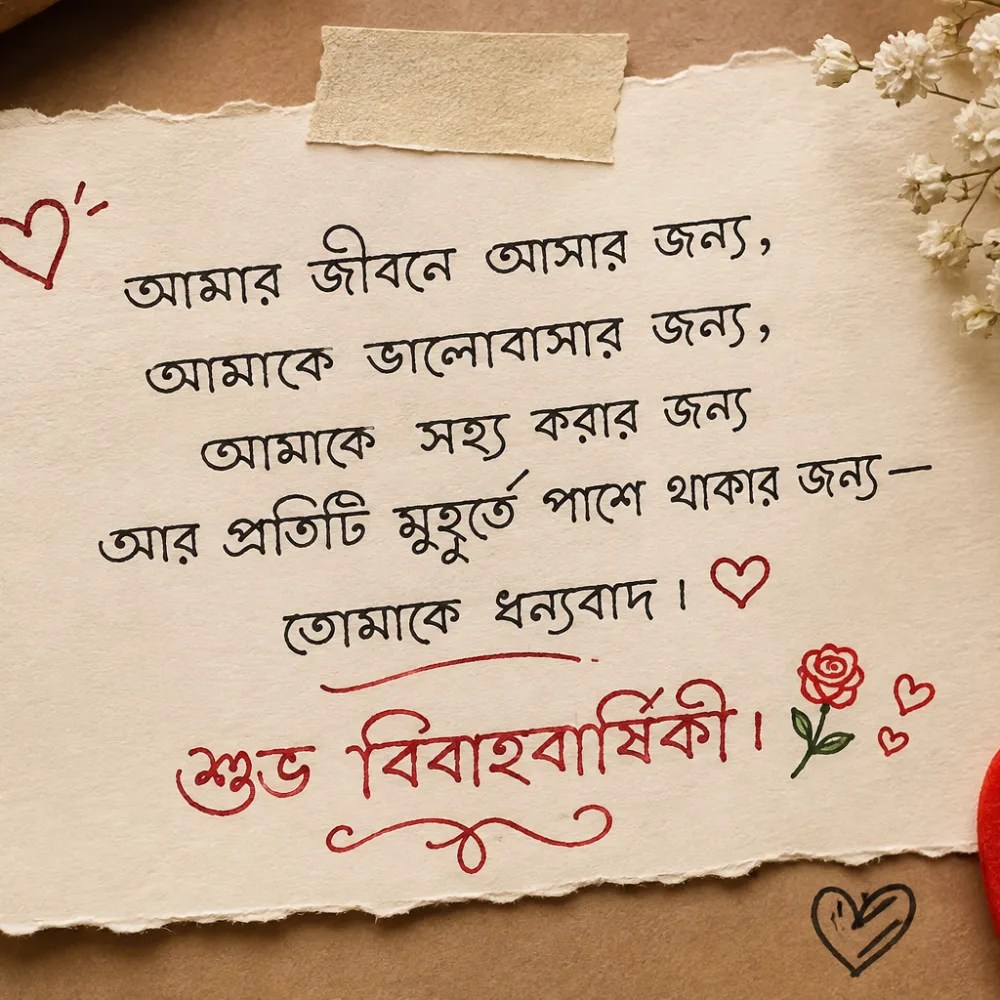 আমার জীবনে আসার জন্য,
আমাকে ভালোবাসার জন্য,
আমাকে সহ্য করার জন্য
আর প্রতিটি মুহূর্তে পাশে থাকার জন্য—
তোমাকে ধন্যবাদ।
শুভ বিবাহবার্ষিকী।